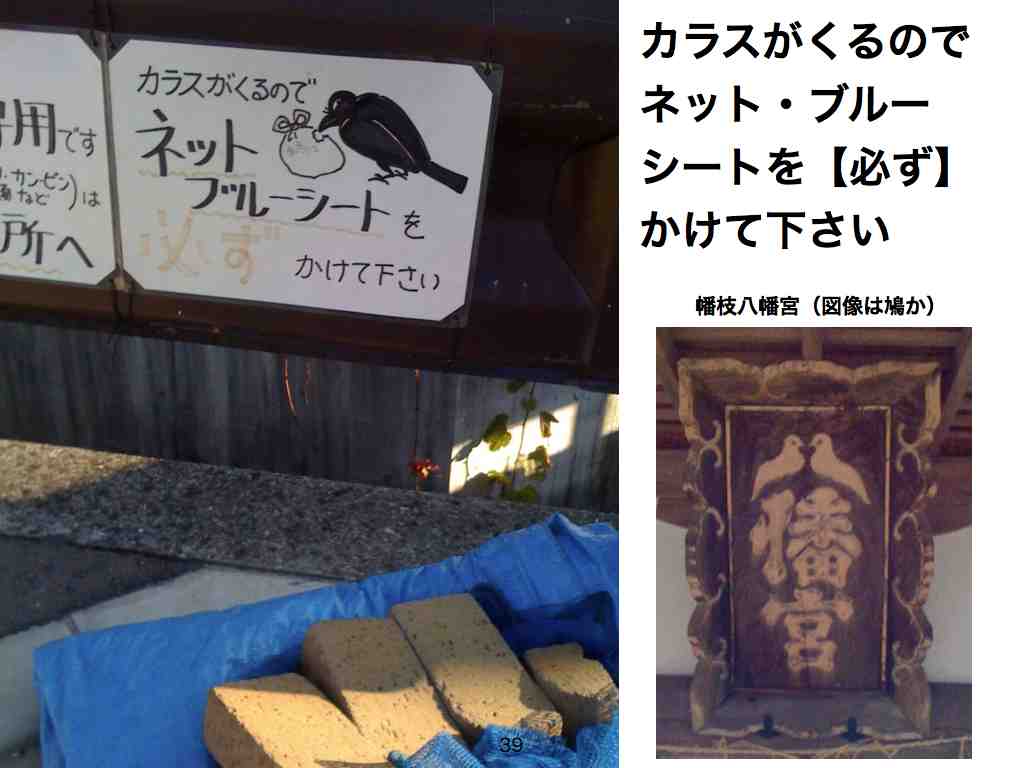 専用です
カン・ビン)は
など
所へ
カラスがくるので
ネット
ブルーシートを
必ず
かけて下さい
39
カラスがくるので
ネット・ブルー
シートを【必ず】
かけて下さい
幡枝八幡宮（図像は鳩か）
八幡宮